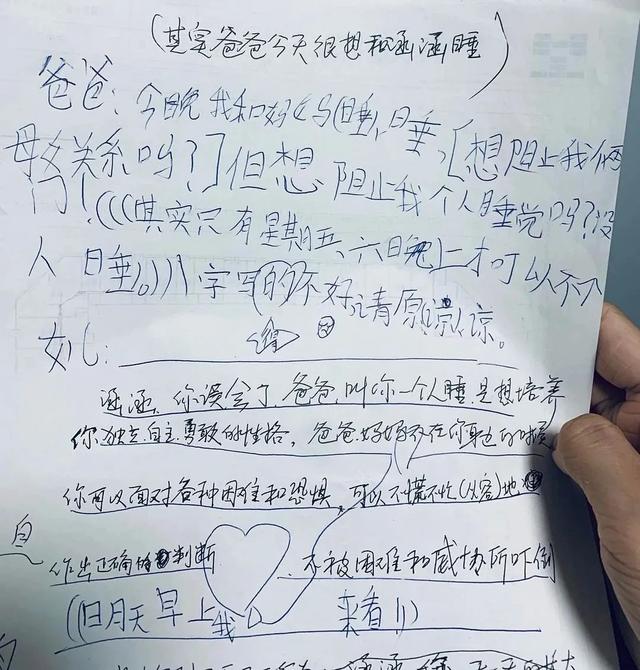 (其实爸爸今天很想和涵涵睡
爸爸：今晚我和妈妈睡，睡，[想阻止我俩
母女关系吗？]但想阻止我个人睡觉吗？没
门！(((其实只有星期五、六日晚上才可以不个
人睡。)))字写的不好请原谅谅。
女儿：
涵涵，你误会了，爸爸叫你一个人睡是想培养
你独立自主勇敢的性格，爸爸妈妈不在你身边的时候
你可以面对各种困难和恐惧，可以不慌不忙(从容)地
作出正确的判断 不被困难和威协所吓倒
((日月天早上我 来看))